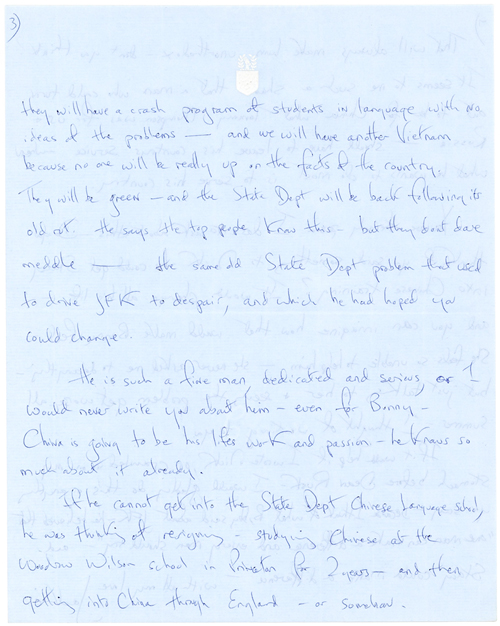 3)
they will have a crash program of students in language with no
ideas of the problems — and we will have another Vietnam
because no one will be really up on the facts of the country.
They will be green — and the State Dept will be back following its
old rut. He says the top people know this — but they dont dare
meddle — the same old State Dept problem that used
to drive JFK to despair, and which he had hoped you
could change.
He is such a fine man, dedicated and serious, or I
would never write you about him — even for Bunny —
China is going to be his lifes work and passion — he knows so
much about it already.
If he cannot get into the State Dept Chinese Language school,
he was thinking of resigning — studying Chinese at the
Woodrow Wilson school in Princeton for 2 years — and then
getting into China through England — or somehow.